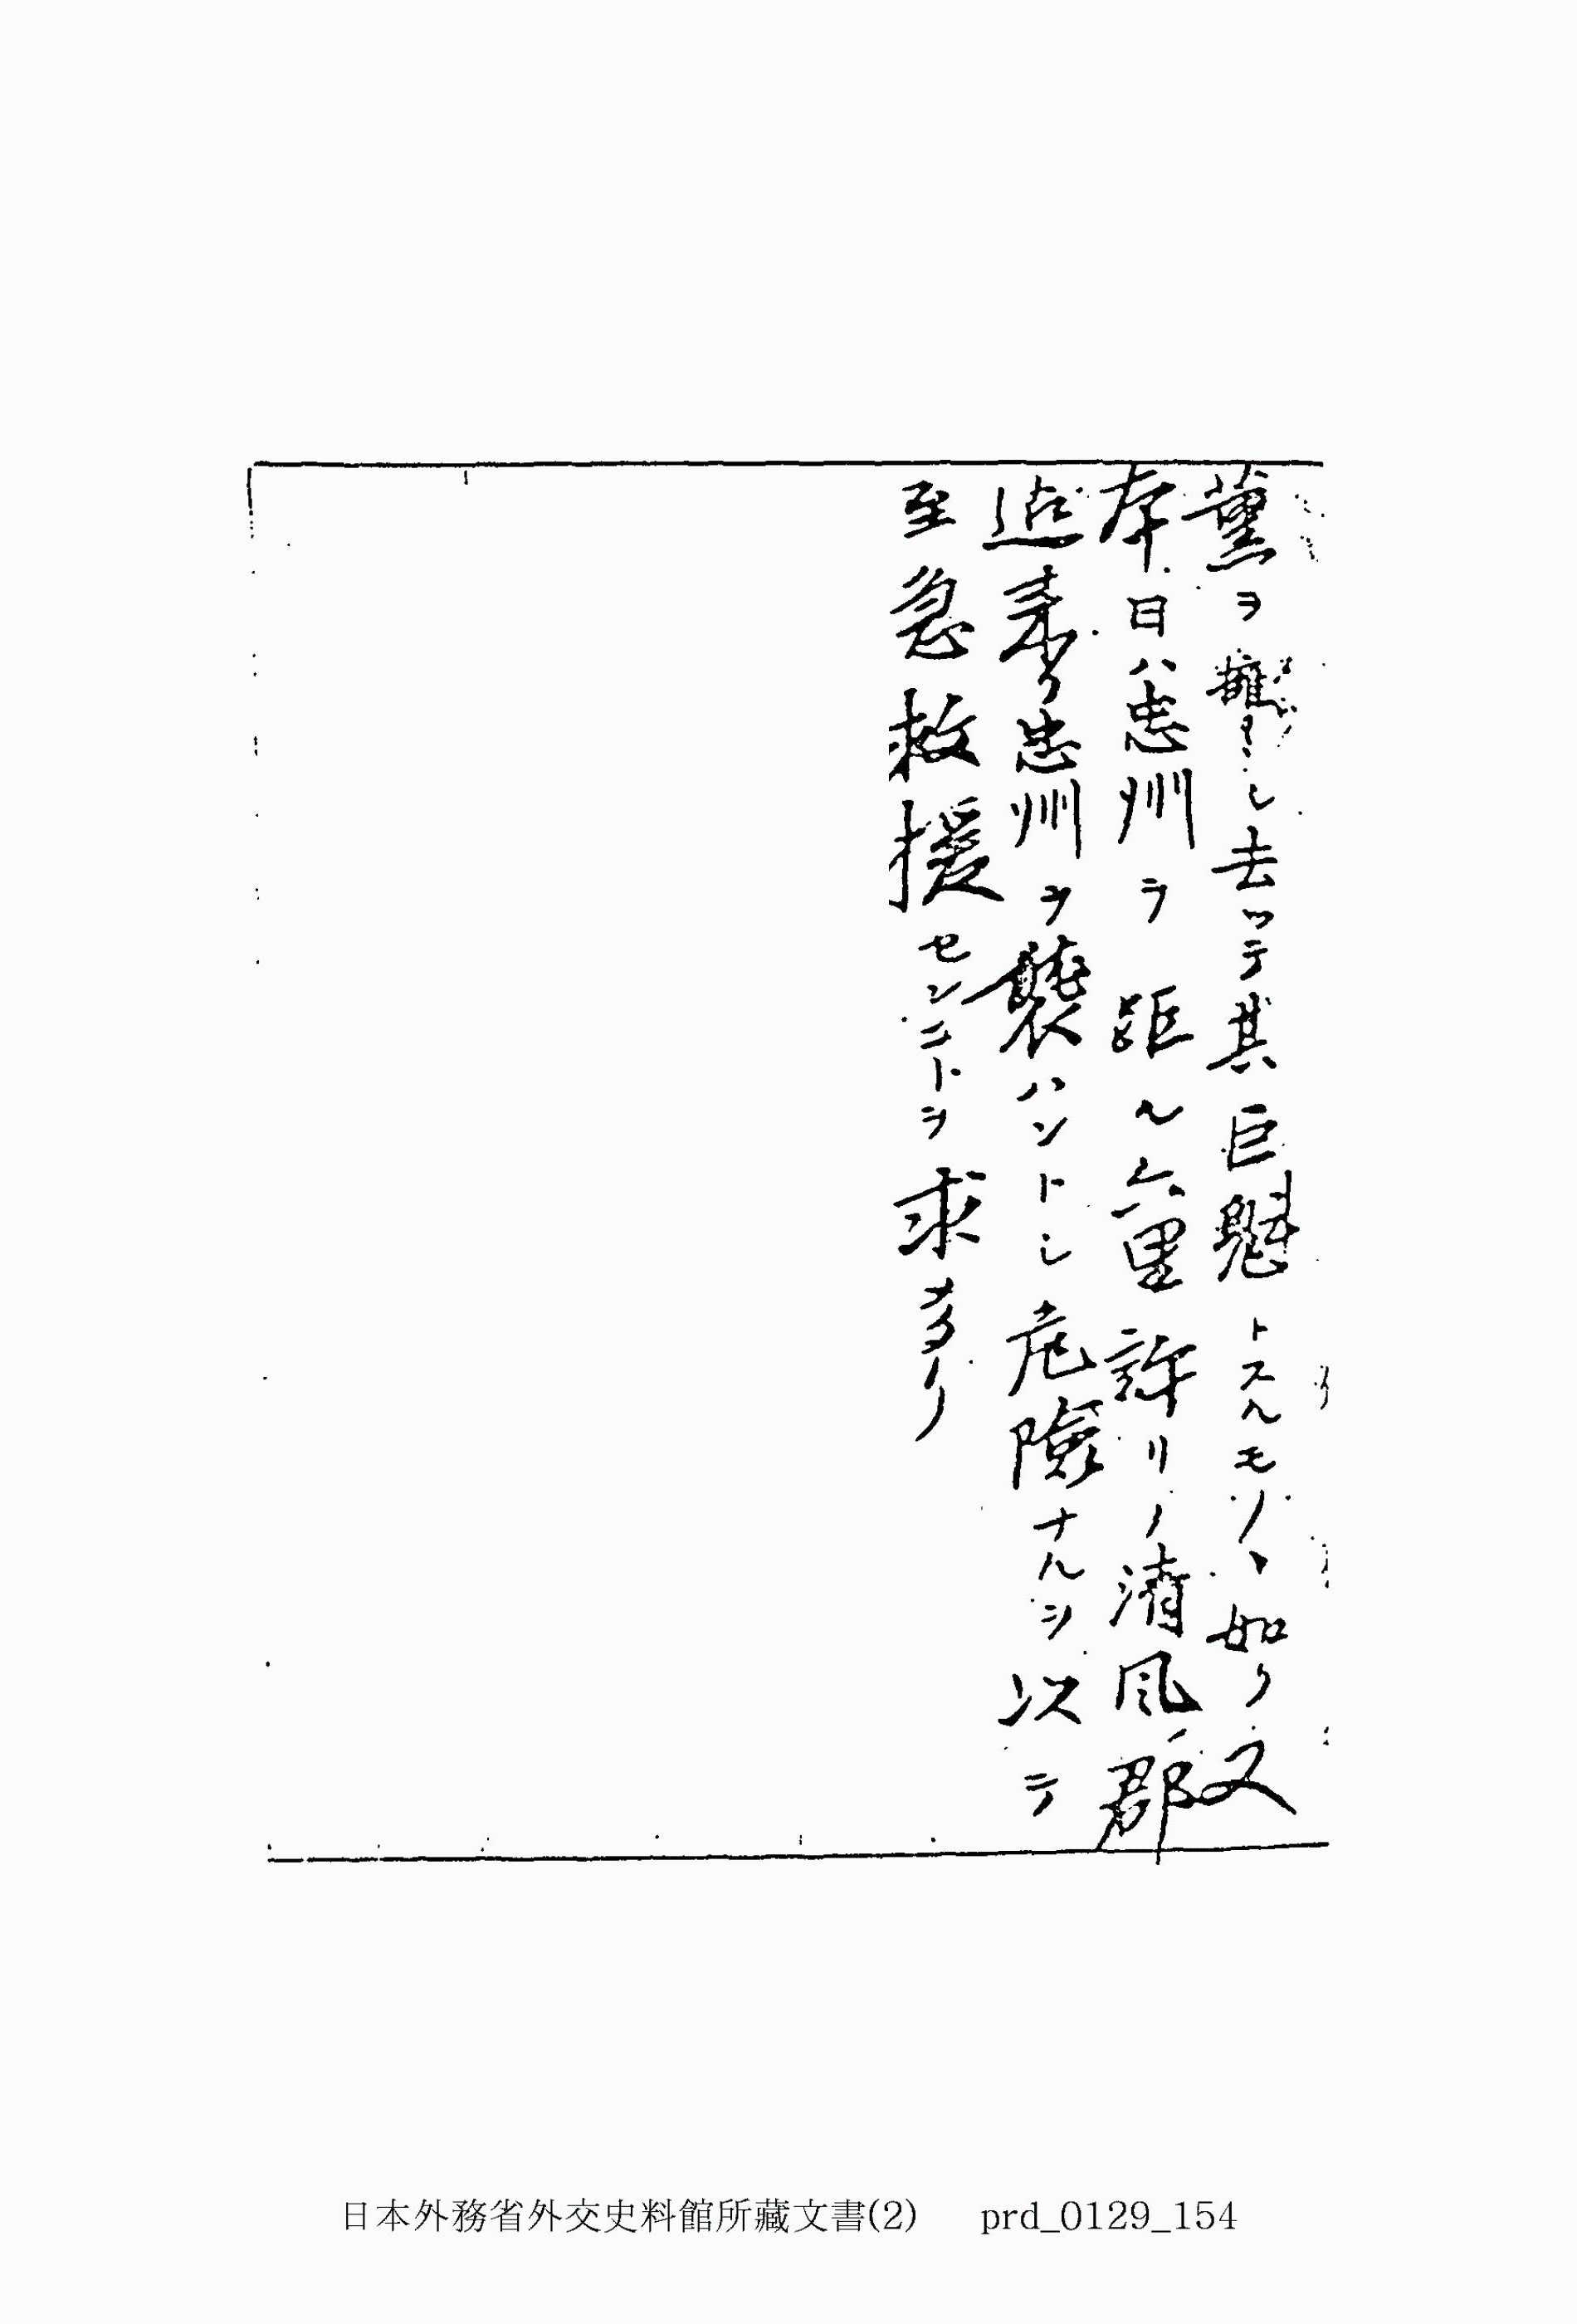 薫ヲ擁シ去ツテ其巨魁トスルモノヽ如リ又
本日ハ忠州ヲ距ル六里許リノ清風郡
迄来リ忠州ヲ襲ハントシ危険ナルヲ以テ
至急救援センコトヲ求メタリ
日本外務省外交史料館所藏文書(2) prd_0129_154